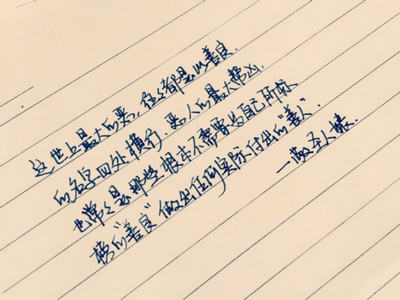 这世上最大的恶，往々都是以善良
的名字四处横行，恶人的最大帮凶，
也常々是那些根本不需要为自己所标
榜的“善良”做出任何实际付出的“善人”.
—圣人婊